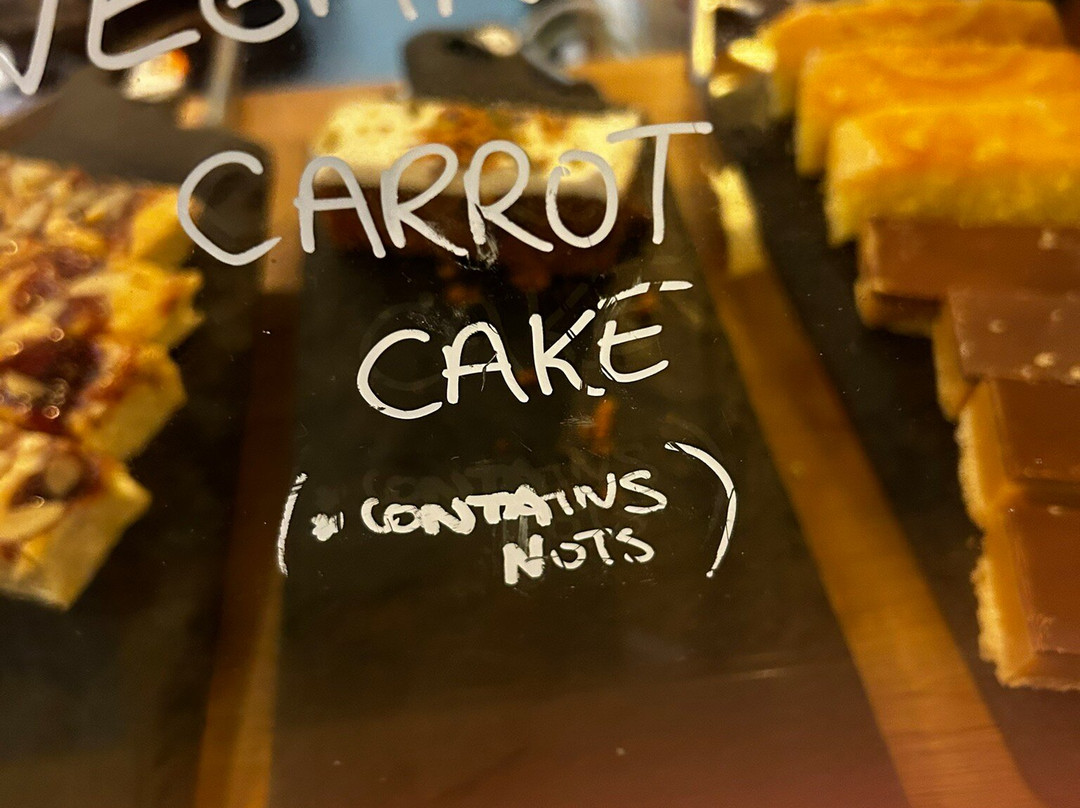 VEGAN
CARROT
CAKE
(* CONTAINS
NUTS)